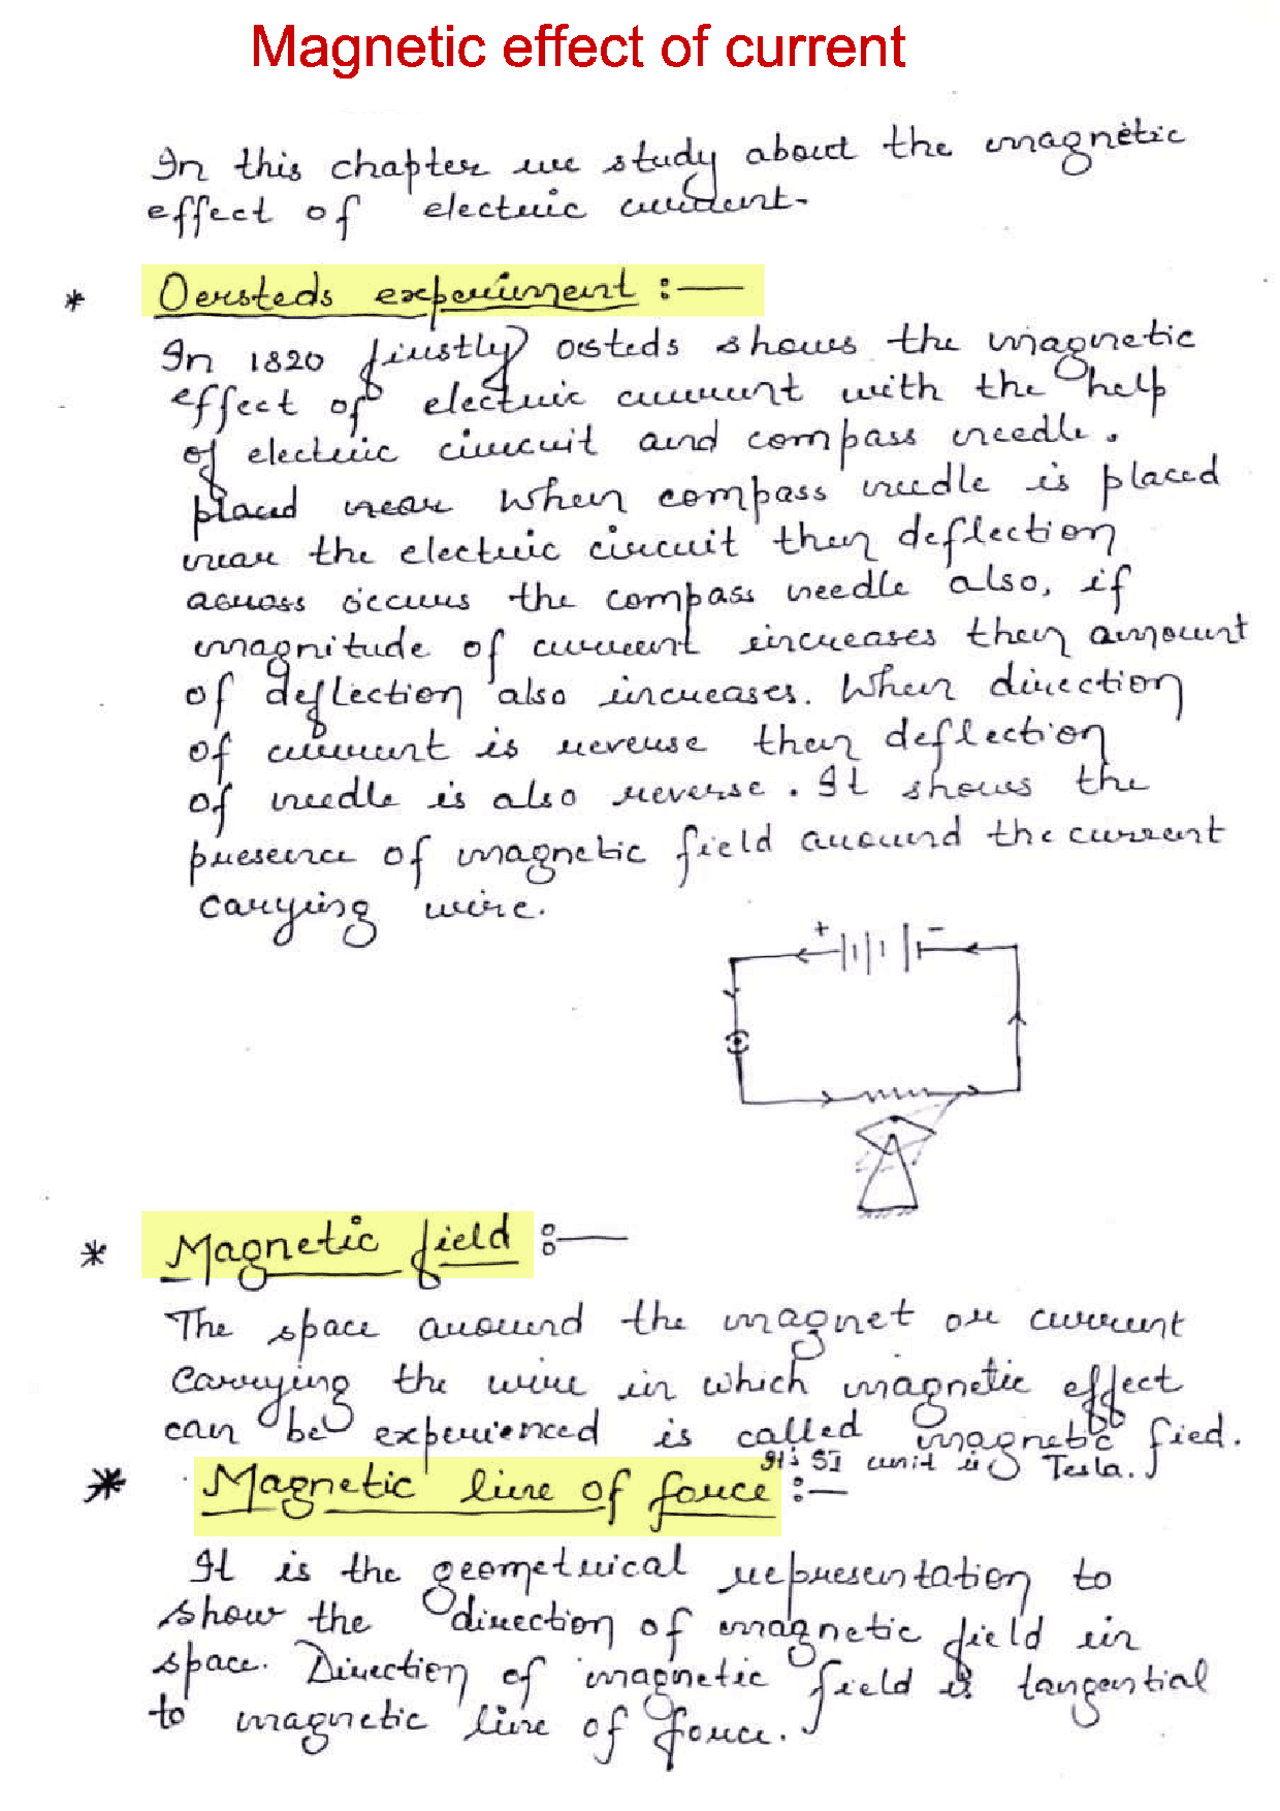 Magnetic effect of current
In this chapter we study about the magnetic
effect of electric current.
* Oersteds experiment :—
In 1820 firstly orsteds shows the magnetic
effect of electric current with the help
of electric circuit and compass needle.
placed near When compass needle is placed
near the electric circuit then deflection
across occurs the compass needle also, if
magnitude of current increases then amount
of deflection also increases. When direction
of current is reverse then deflection
of needle is also reverse. It shows the
presence of magnetic field around the current
carrying wire.
+ -
* Magnetic field :—
The space around the magnet or current
carrying the wire in which magnetic effect
can be experienced is called magnetic fied.
It's SI unit is Tesla.
* Magnetic line of force :—
It is the geometrical representation to
show the direction of magnetic field in
space. Direction of magnetic field is tangential
to magnetic line of force.